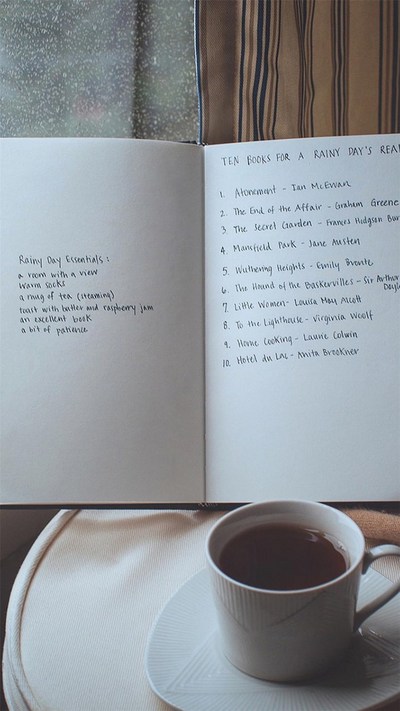 Rainy Day Essentials:
a room with a view
warm socks
a mug of tea (steaming)
toast with butter and raspberry jam
an excellent book
a bit of patience
TEN BOOKS FOR A RAINY DAY'S REA
1. Atonement - Ian McEwan
2. The End of the Affair - Graham Greene
3. The Secret Garden - Frances Hodgson Bur
4. Mansfield Park - Jane Austen
5. Wuthering Heights - Emily Bronte
6. The Hound of the Baskervilles - Sir Arthur
Doyl
7. Little Women - Louisa May Alcott
8. To the Lighthouse - Virginia Woolf
9. Home Cooking - Laurie Colwin
10. Hotel du Lac - Anita Brookner